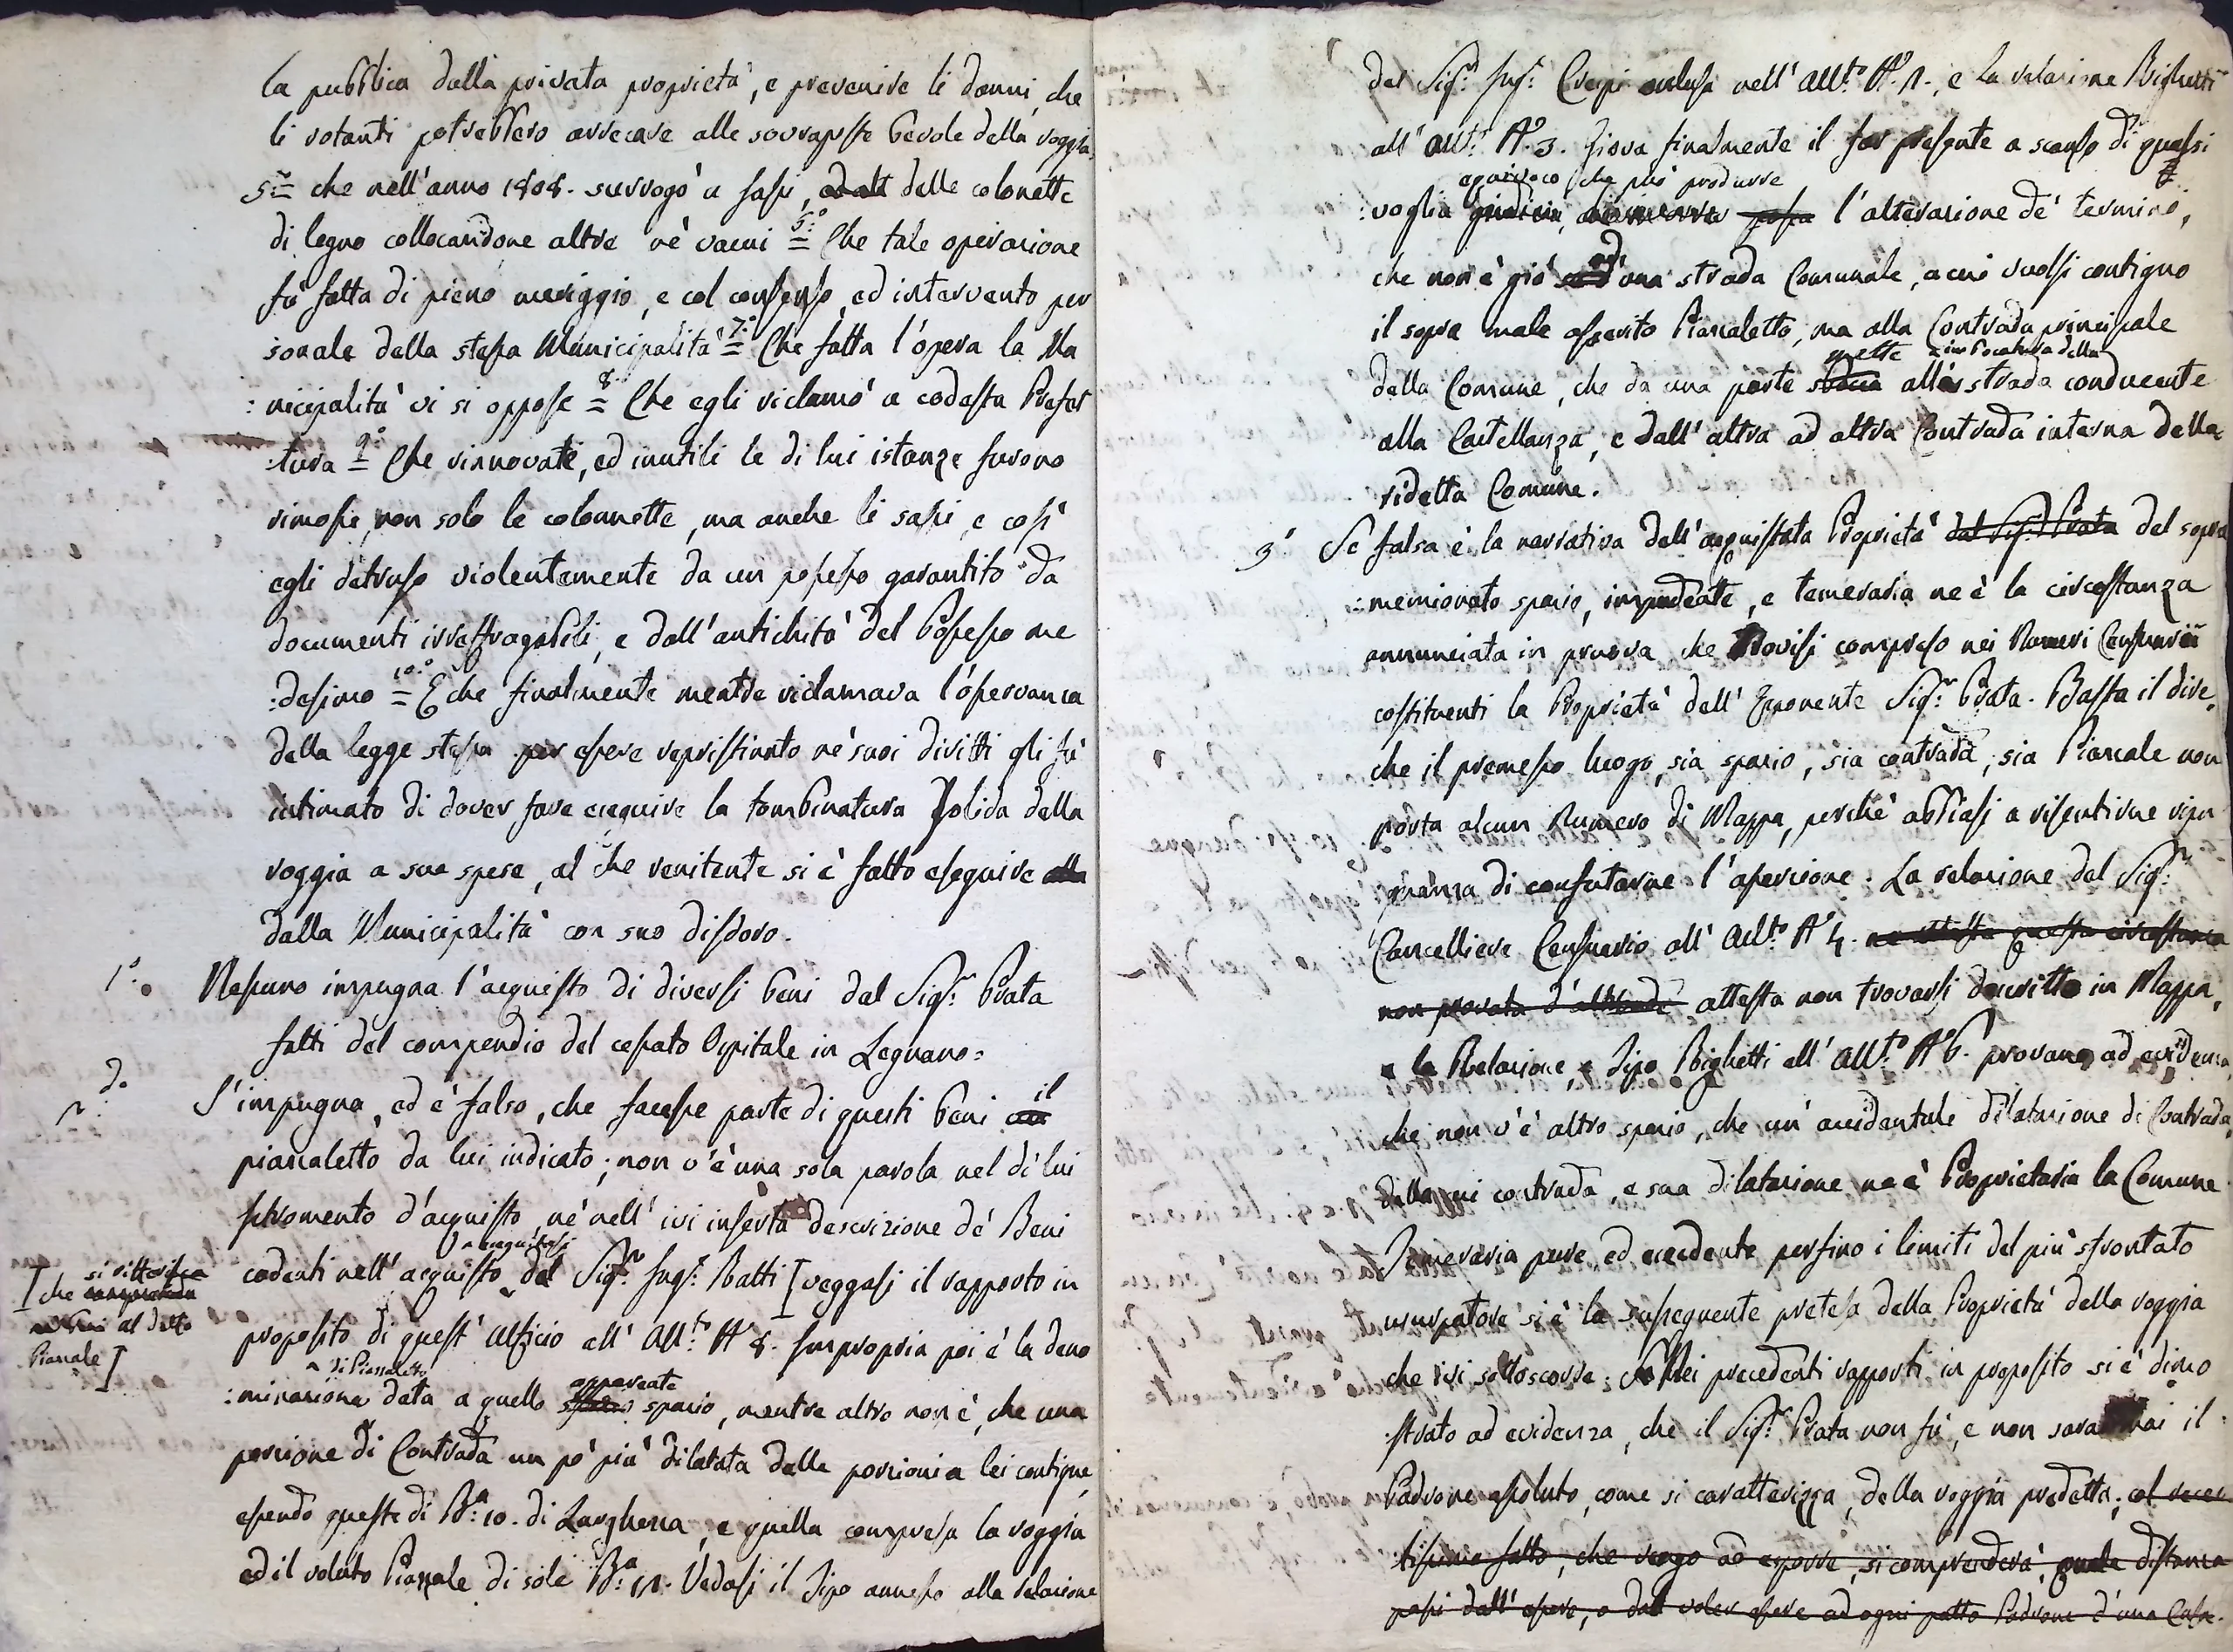 la pubblica dalla privata proprietà, e prevenire li danni, che
li rotanti potrebbero arrecare alle sovrapposte bevole della roggia
5.° = che nell'anno 1808. surrogò a sassi, delle colonette
di legno collocandone altre ne' vacui = 6.° Che tale operazione
fù fatta di pieno meriggio, e col consenso, ed intervento per
sonale della stessa Municipalità = 7.° Che fatta l'opera la Mu
:nicipalità vi si oppose = 8.° Che egli reclamò a codesta Prefet
:tura = 9.° Che rinnovate, ed inutili le di lui istanze furono
rimosse, non solo le colonnette, ma anche li sassi, e così
egli detruso violentemente da un possesso garantito da
documenti irrefragabili, e dall'antichità del Possesso me
:desimo = 10.° E che finalmente mentre reclamava l'osservanza
della legge stessa per essere repristinato ne' suoi diritti gli fù
intimato di dover fare eseguire la tombinatura solida della
roggia a sue spese, al che renitente si è fatto eseguire
dalla Municipalità con suo disdoro.
1.° Nessuno impugna l'acquisto di diversi beni dal Sig.r Prata
fatti del compendio del cessato Ospitale in Legnano.
2. S'impugna, ed è falso, che facesse parte di questi beni il
piazzaletto da lui indicato; non v'è una sola parola nel di lui
Istromento d'acquisto, nè nell'ivi inserta descrizione de' Beni
cadenti nell'acquisto del Sig.r Ing.r Ratti [veggasi il rapporto in
[che si riferisca al detto
Piazzale]
proposito di quest'Ufficio all'All.to N.° 8. Impropria poi è la deno
di Piazzaletto
:minazione data a quello apparente spazio, mentre altro non è, che una
porzione di Contrada un pò più dilatata delle porzioni a lei contigue,
essendo queste di B.a 10. di Larghezza, e quella compresa la roggia
ed il voluto Piazzale di sole B.a Vedasi il Tipo annesso alla relazione
del Sig.r Ing.r Crespi inclusa nell'All.to N.° 1., e la relazione Bighetti
all'All.to N.° 3. Giova finalmente il far presente a scanso di qualsi
equivoco che può produrre
:voglia l'alterazione de' termini,
che non è già ad una strada Comunale, a cui vuolsi contiguo
il sopra male asserito Piazzaletto, ma alla Contrada principale
della Comune, che da una parte mette all'imboccatura della strada conducente
alla Castellanza, e dall'altra ad altra Contrada interna della
ridetta Comune.
3.° Se falsa è la narrativa dell'acquistata Proprietà dal Sig.r Prata del sopra
:menzionato spazio, impudente, e temeraria ne è la circostanza
annunciata in pruova che trovisi compreso nei Numeri Censuarii
costituenti la Proprietà dell'Esponente Sig.r Prata. Basta il dire,
che il premesso luogo, sia spazio, sia contrada, sia Piazzale non
porta alcun Numero di Mappa, perchè abbiasi a risentirne ripu
gnanza di confutarne l'asserzione. La relazione del Sig.r
Cancelliere Censuario all'All.to N.° 4. ne attesta questa circostanza
non provata d'altronde attesta non trovarsi descritto in Mappa,
la Relazione, e Tipo Bighetti all'All.to N.° 6. provano ad evidenza,
che non v'è altro spazio, che un'accidentale dilatazione di Contrada,
della cui contrada, e sua dilatazione ne è Proprietaria la Comune
Temeraria pure ed eccedente persino i limiti del più sfrontato
usurpatore si è la susseguente pretesa della Proprietà della roggia
che ivi sottoscorre: Nei precedenti rapporti in proposito si è dimo
:strato ad evidenza, che il Sig.r Prata non fù, e non sarà mai il
Padrone assoluto, come si caratterizza, della roggia predetta; col recen
tissimo fatto, che vengo ad esporre, si comprenderà, quale distanza
passi dall'essere, o dal voler essere ad ogni patto Padrone d'una Cosa.